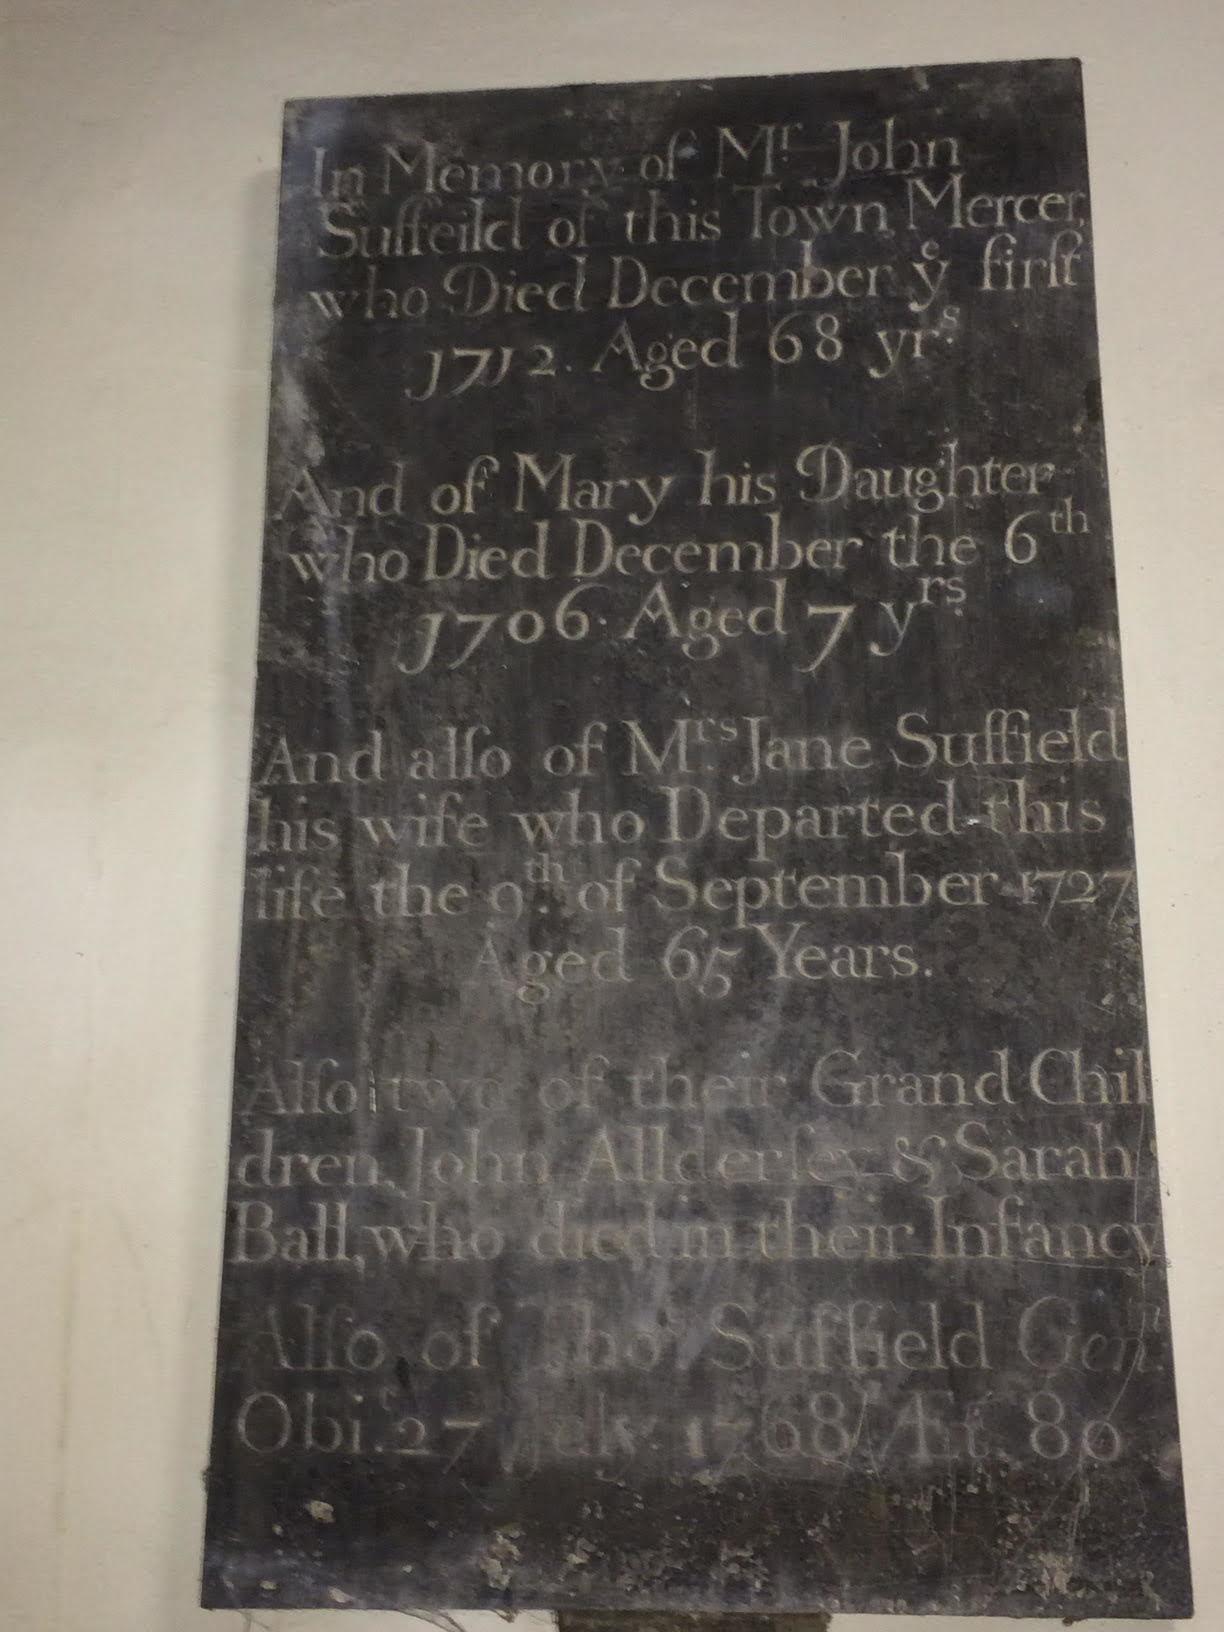 In Memory of Mr. John
Suffeild of this Town, Mercer,
who Died December ye firſt
1712. Aged 68 yrs.
And of Mary his Daughter
who Died December the 6th
1706. Aged 7 yrs.
And alſo of Mrs. Jane Suffield
his wife who Departed this
life the 9th. of September 1727
Aged 65 Years.
Alſo two of their Grand Chil
dren, John Allderſey & Sarah
Ball, who died in their Infancy
Alſo of Thos. Suffield Gent.
Obi. 27 July 1768 Æt. 80